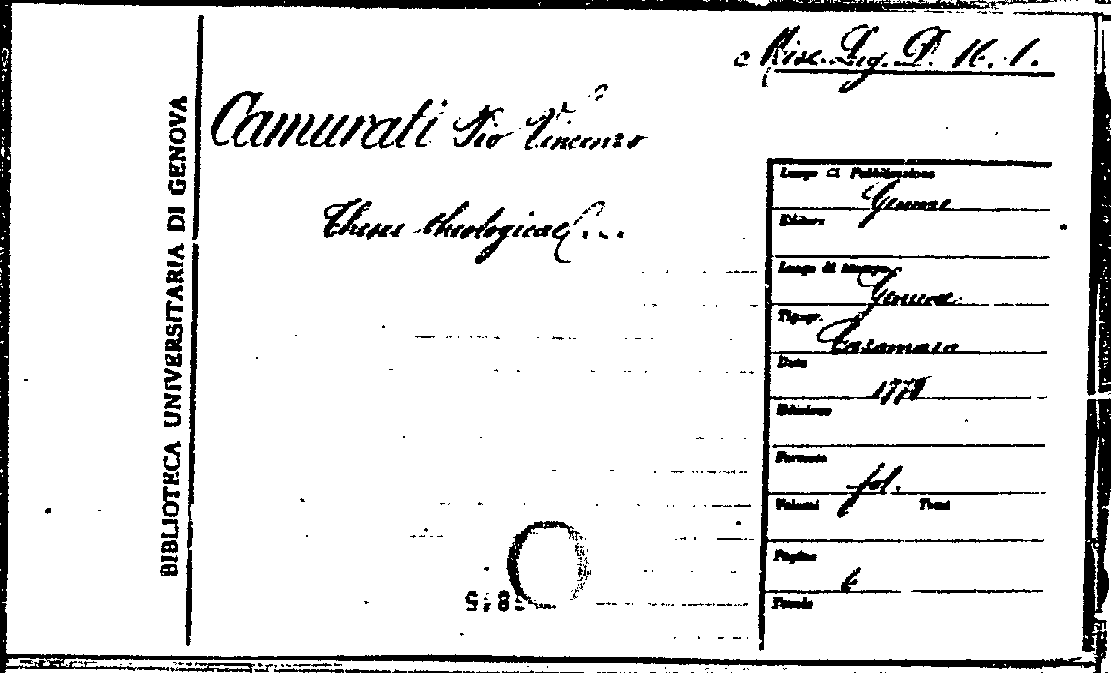 Misc. Lig. D. 16. 1.
BIBLIOTECA UNIVERSITARIA DI GENOVA
Camurati Pio Vincenzo
Theses theologicae...
Luogo di Pubblicazione
Genuae
Editore
Luogo di stampa
Genuae
Tipogr.
Casamara
Data
1778
Edizione
Formato
fol.
Volumi Tomi
Pagine
6
Tavole